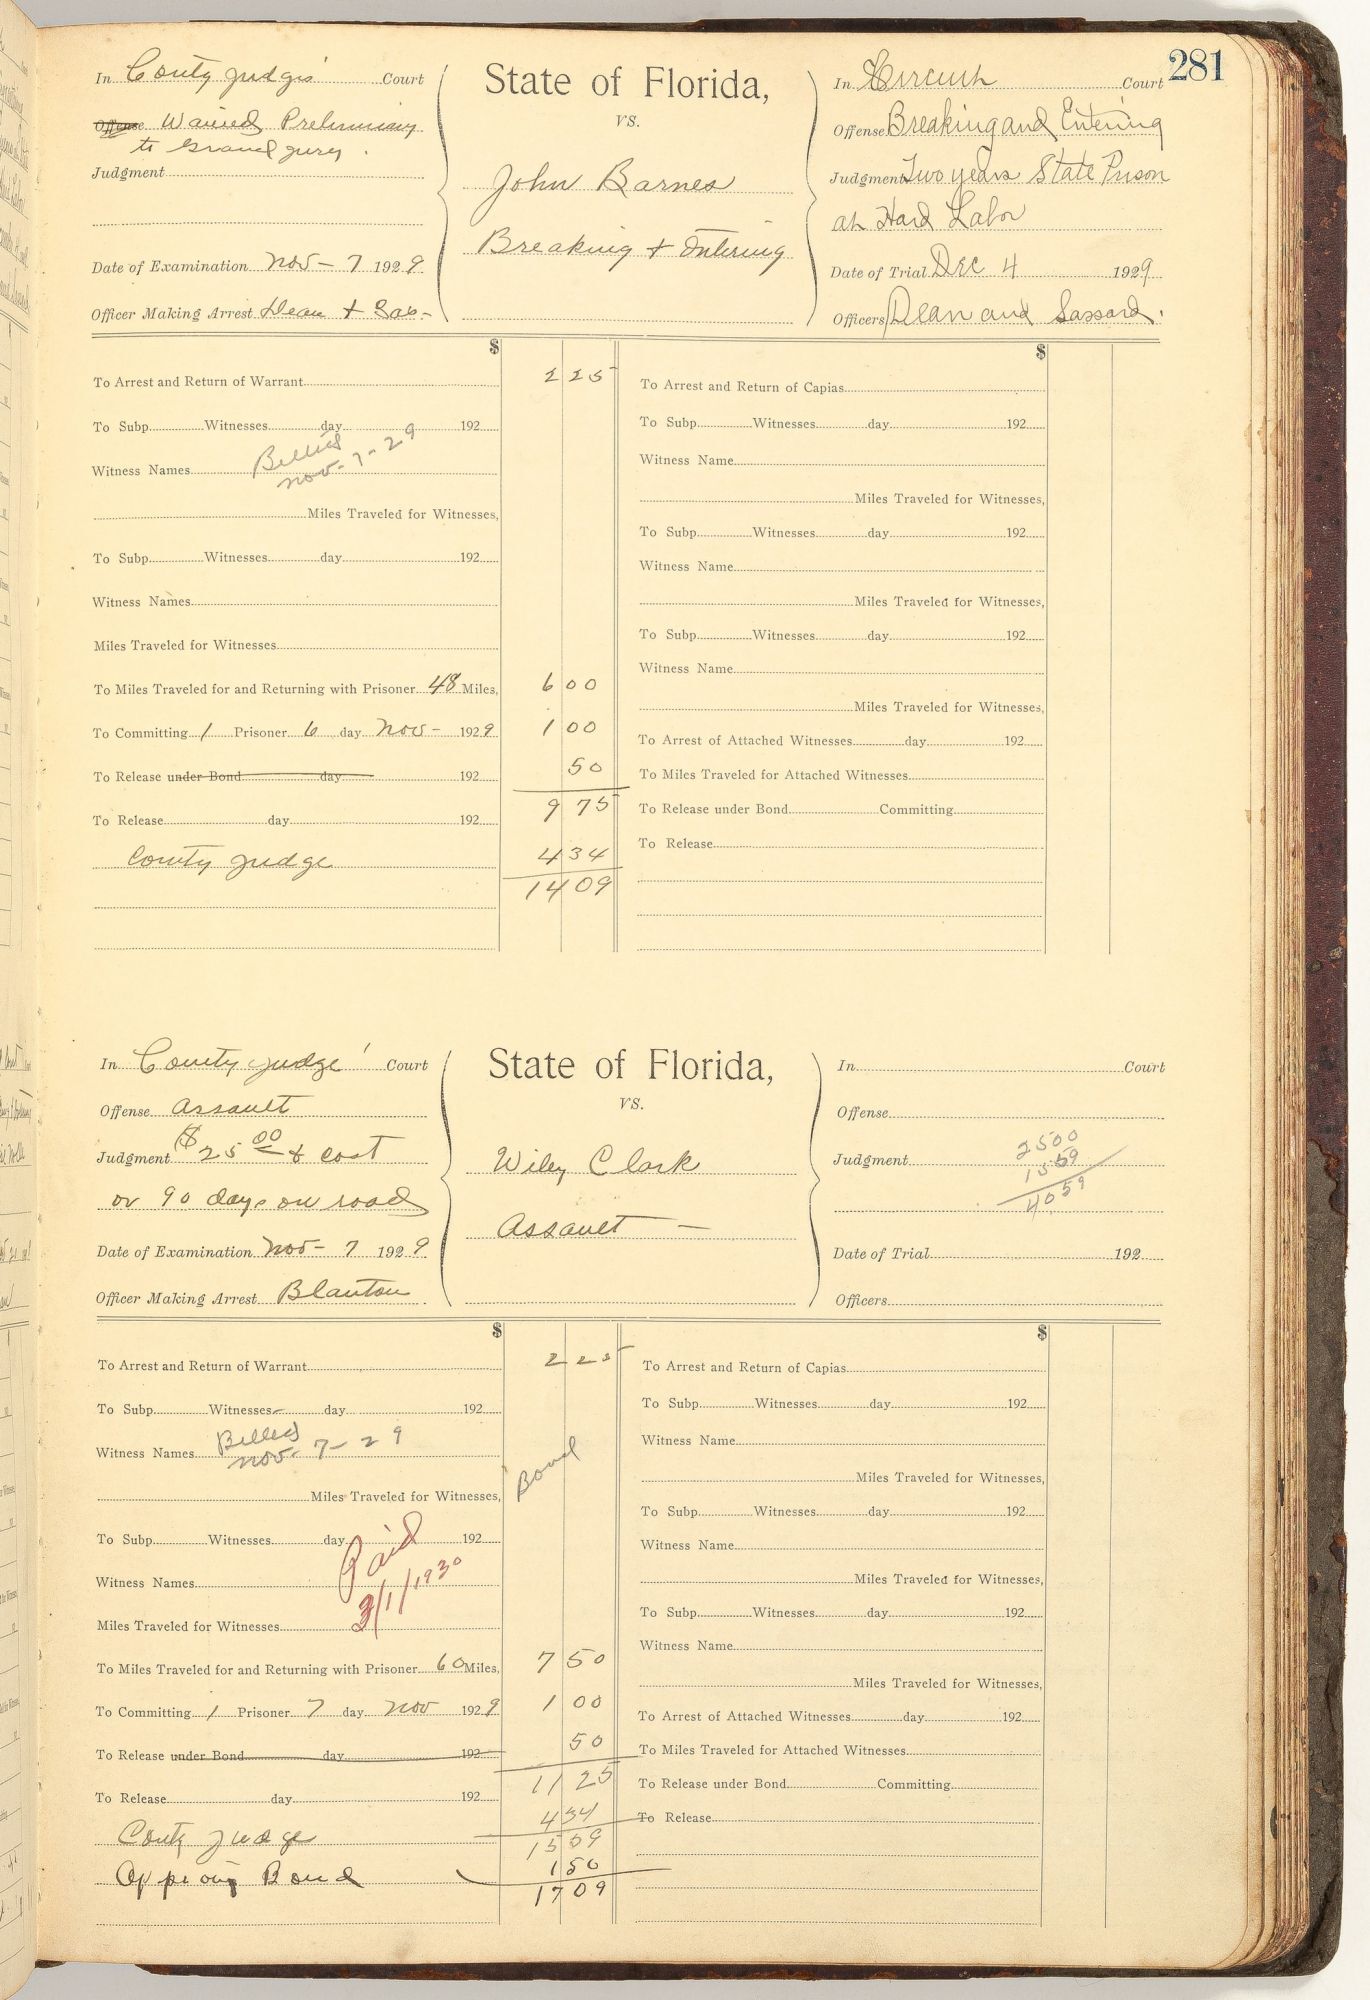 281
In County Judges' Court
Offense Waived Preliminary
to Grand Jury.
Judgment
Date of Examination Nov - 7 1929
Officer Making Arrest Dean + Sas-
State of Florida,
VS.
John Barnes
Breaking + Entering
In Circuit Court
Offense Breaking and Entering
Judgment Two years State Prison
at Hard Labor
Date of Trial Dec 4 1929
Officers Dean and Sassard.
$
To Arrest and Return of Warrant 2 25
To Subp. Witnesses day 192
Witness Names
Billed
Nov- 7-29
Miles Traveled for Witnesses,
To Subp. Witnesses day 192
Witness Names
Miles Traveled for Witnesses
To Miles Traveled for and Returning with Prisoner 48 Miles, 6 00
To Committing 1 Prisoner 6 day Nov- 1929 1 00
To Release under Bond day 192 50
9 75
To Release day 192
County Judge 4 34
14 09
$
To Arrest and Return of Capias
To Subp. Witnesses day 192
Witness Name
Miles Traveled for Witnesses,
To Subp. Witnesses day 192
Witness Name
Miles Traveled for Witnesses,
To Subp. Witnesses day 192
Witness Name
Miles Traveled for Witnesses,
To Arrest of Attached Witnesses day 192
To Miles Traveled for Attached Witnesses
To Release under Bond Committing
To Release
In County Judge' Court
Offense Assault
Judgment $25 00 & cost
or 90 days on road
Date of Examination Nov- 7 1929
Officer Making Arrest Blanton
State of Florida,
VS.
Wiley Clark
Assault —
In Court
Offense
Judgment
2500
1559
4059
Date of Trial 192
Officers
$
To Arrest and Return of Warrant 2 25
To Subp. Witnesses day 192
Witness Names
Billed
Nov- 7- 29
Bond
Miles Traveled for Witnesses,
To Subp. Witnesses day 192
Paid
3/1/1930
Witness Names
Miles Traveled for Witnesses
To Miles Traveled for and Returning with Prisoner 60 Miles, 7 50
To Committing 1 Prisoner 7 day Nov 1929 1 00
To Release under Bond day 192 50
11 25
To Release day 192
County Judge 4 34
15 59
Approving Bond 1 50
17 09
$
To Arrest and Return of Capias
To Subp. Witnesses day 192
Witness Name
Miles Traveled for Witnesses,
To Subp. Witnesses day 192
Witness Name
Miles Traveled for Witnesses,
To Subp. Witnesses day 192
Witness Name
Miles Traveled for Witnesses,
To Arrest of Attached Witnesses day 192
To Miles Traveled for Attached Witnesses
To Release under Bond Committing
To Release